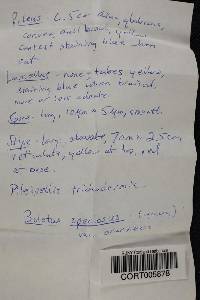 Pileus - 6.5cm diam, glabrous,
convex, dull brown, yellow
context staining blue when
cut.
Lamellae - none - tubes yellow,
staining blue when bruised,
more or less adnate.
Spore - 10µm x 5µm, smooth.
Stipe - long, clavate, 7cm x 2.5cm,
reticulate, yellow at top, red
at base.
Pileipellis trichodermic
Boletus speciosus
var.
CORT005878